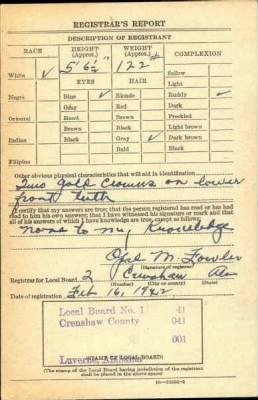 REGISTRAR'S REPORT
DESCRIPTION OF REGISTRANT
RACE HEIGHT (Approx.) WEIGHT (Approx.) COMPLEXION
White ✓ 5' 6½" 122# Sallow
EYES HAIR Light
Negro Blue ✓ Blonde Ruddy ✓
Gray Red Dark
Oriental Hazel Brown Freckled
Brown Black Light brown
Indian Black Gray ✓ Dark brown
Bald Black
Filipino
Other obvious physical characteristics that will aid in identification
Two gold crowns on lower
front teeth
I certify that my answers are true; that the person registered has read or has had
read to him his own answers; that I have witnessed his signature or mark and that
all of his answers of which I have knowledge are true, except as follows:
none to my Knowledge
Opal M. Fowler
(Signature of registrar)
Registrar for Local Board 2 Crenshaw Ala
(Number) (City or county) (State)
Date of registration Feb 16, 1942
Local Board No. 1 41
Crenshaw County 041
001
Luverne, Alabama
(STAMP OF LOCAL BOARD)
(The stamp of the Local Board having jurisdiction of the registrant
shall be placed in the above space)